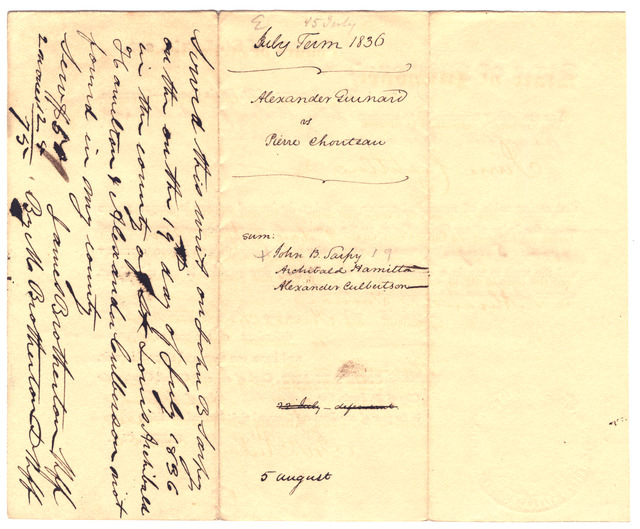 Served this writ on John B Sarpy
on the on the 19th day of July 1836
in the county of St Louis Archibald
Hamilton & Alexander Culbertson not
found in my county
James Brotherton Shff
By M Brotherton D Shff
Serv
75
E 15 July
July Term 1836
Alexander Guinard
vs
Pierre Chouteau
sum:
x John B. Sarpy 19
Archibald Hamilton
Alexander Culbertson
22 July – defendant
5 august